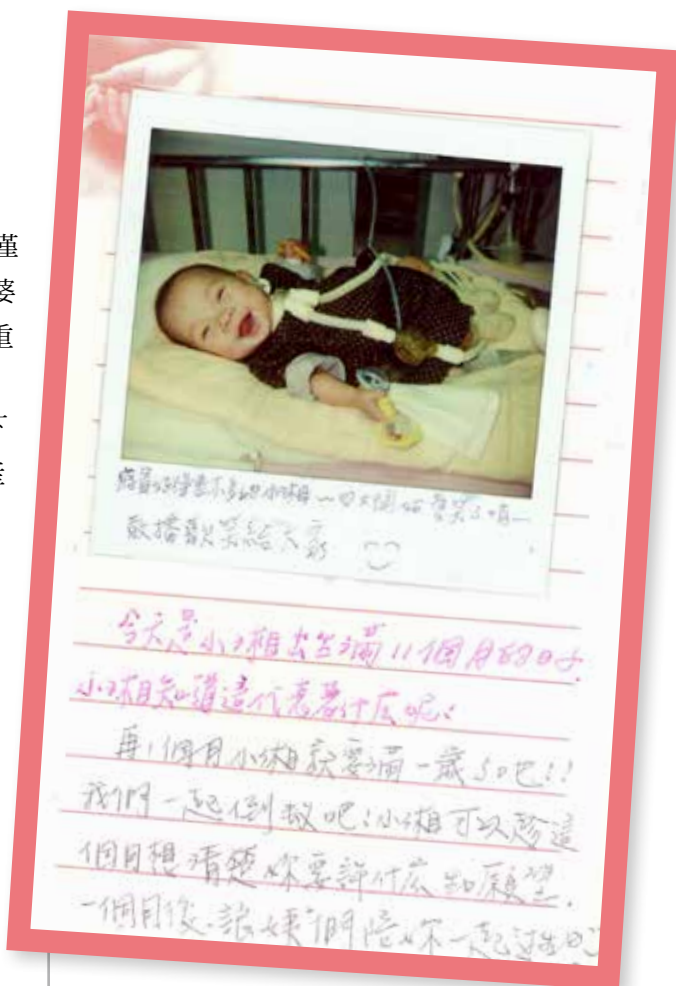 瑾
婆
重
小湘～
散播歡笑給大家
今天是小湘出生滿11個月的日子
小湘知道這代表著什麼呢?
再1個月小湘就要滿一歲了吧!!
我們一起倒數吧!小湘可以趁這
個月想清楚妳要許什麼願望.
一個月後.讓姨們陪妳一起過生日